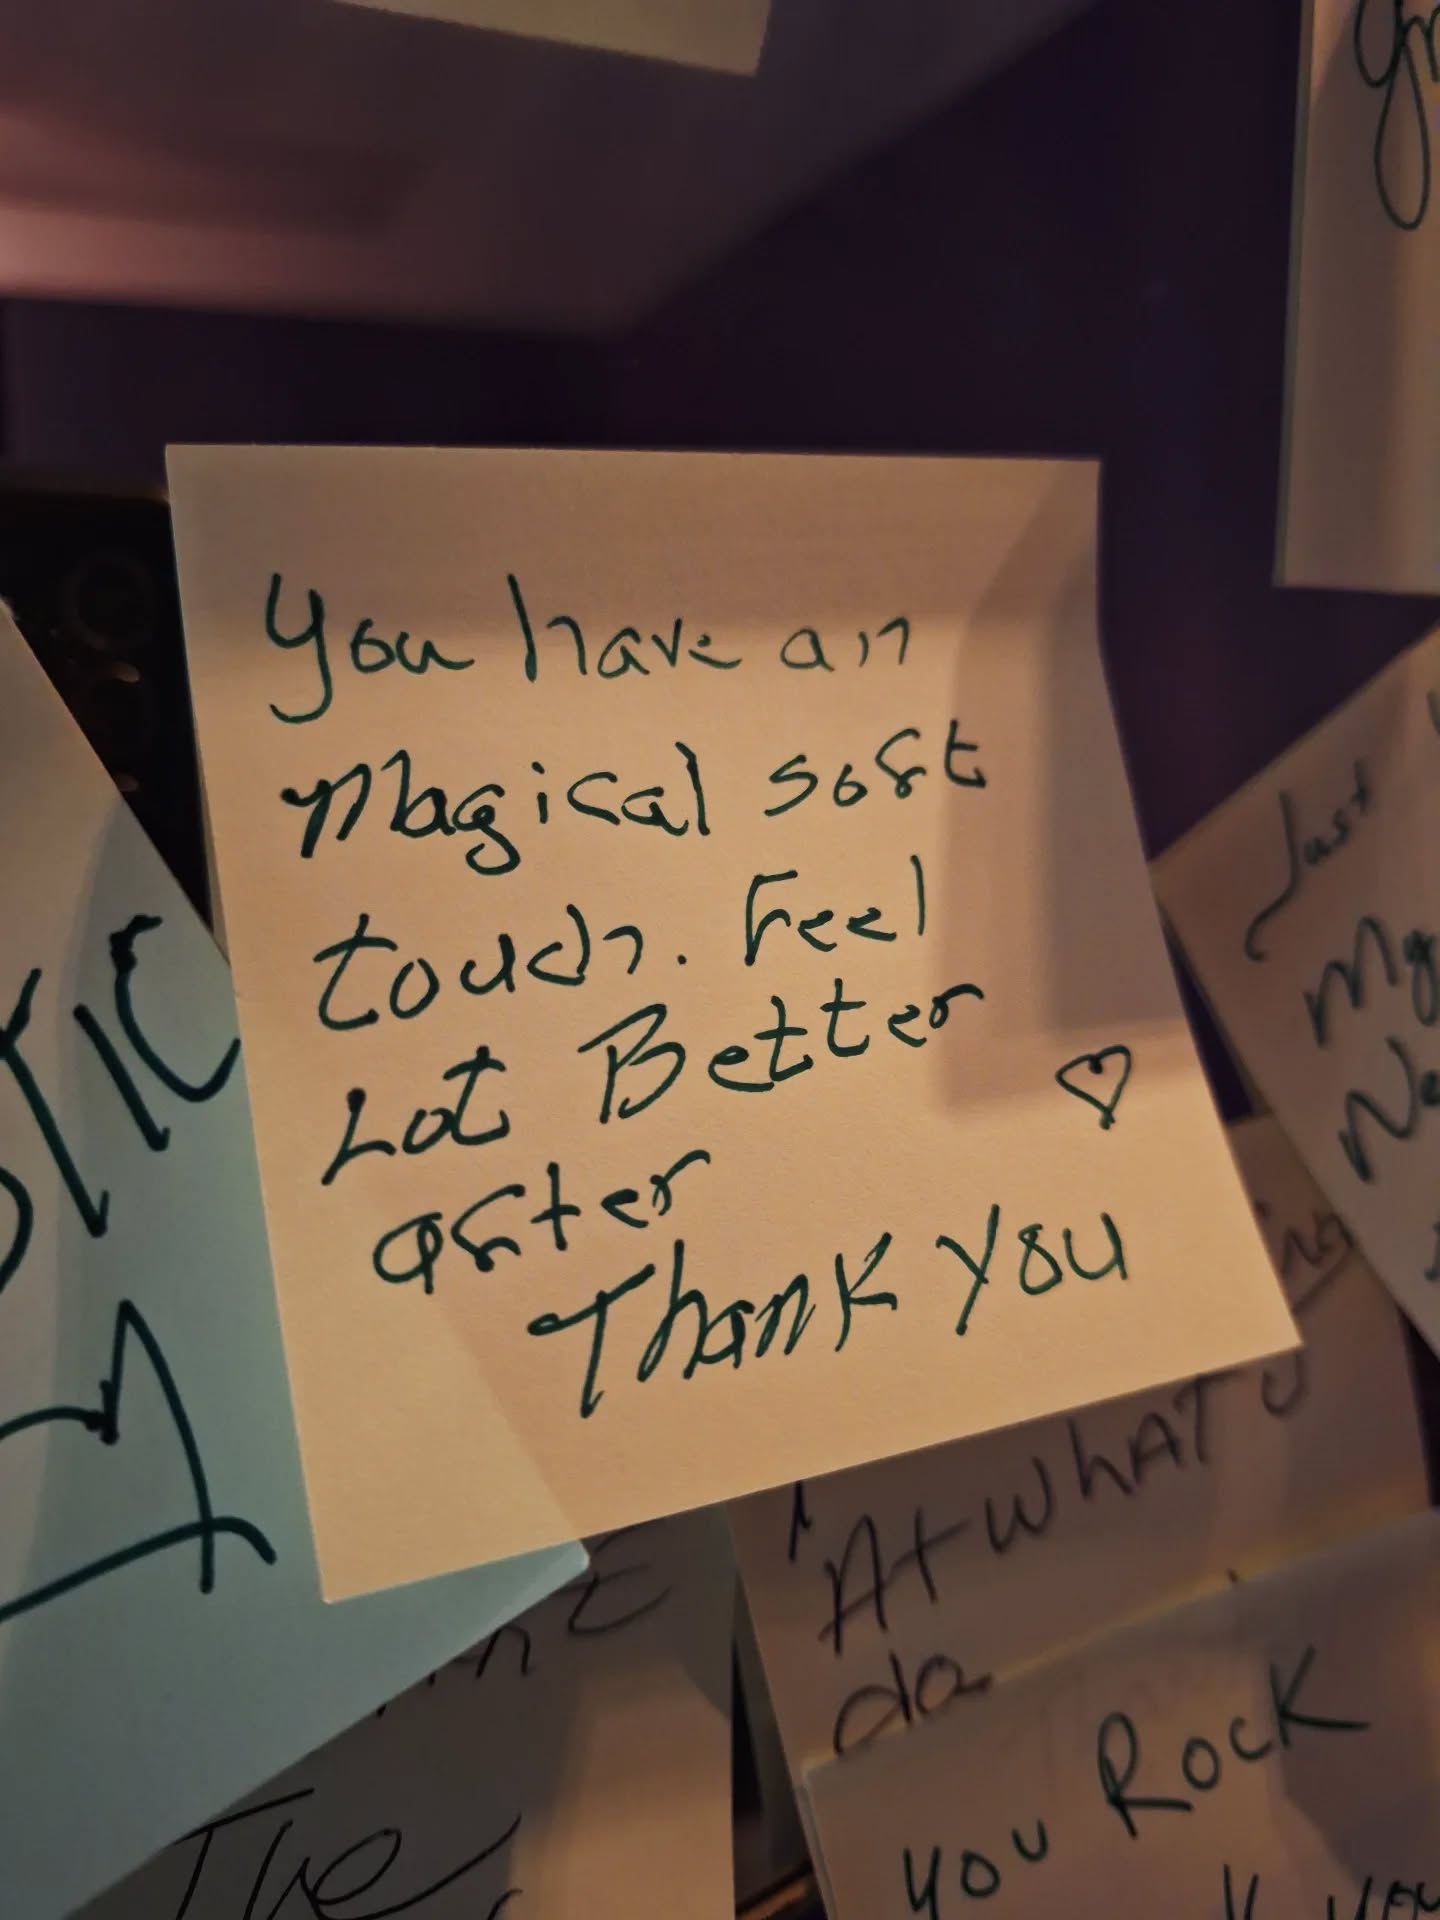 You have an
Magical soft
touch. Feel
Lot Better
after
Thank you
Just
My
TIC
At WhAT U
do
The
you Rock